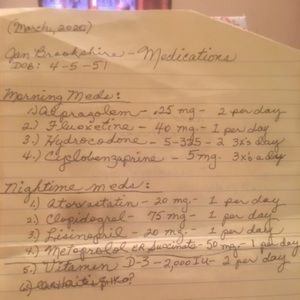 (March, 2020)
Jan Brookshire - Medications
DOB: 4-5-51
Morning Meds:
1.) Alprazolam - .25 mg - 2 per day
2.) Fluoxetine - 40 mg - 1 per day
3.) Hydrocodone - 5-325 - 2 3x's day
4.) Cyclobenzaprine - 5mg. 3x's a day
Nightime meds:
1.) Atorvastatin - 20 mg. - 1 per day
2.) Clopidogrel - 75 mg - 1 per day
3.) Lisinopril - 20 mg. - 1 per day
4.) Metoprolol ER Succinate - 50 mg - 1 per day
5.) Vitamin D-3 - 2,000 IU - 2 per day
6.)